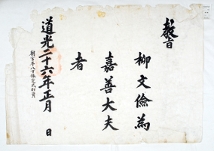 敎旨
柳文儉爲
嘉善大夫
者
道光二十六年正月 日